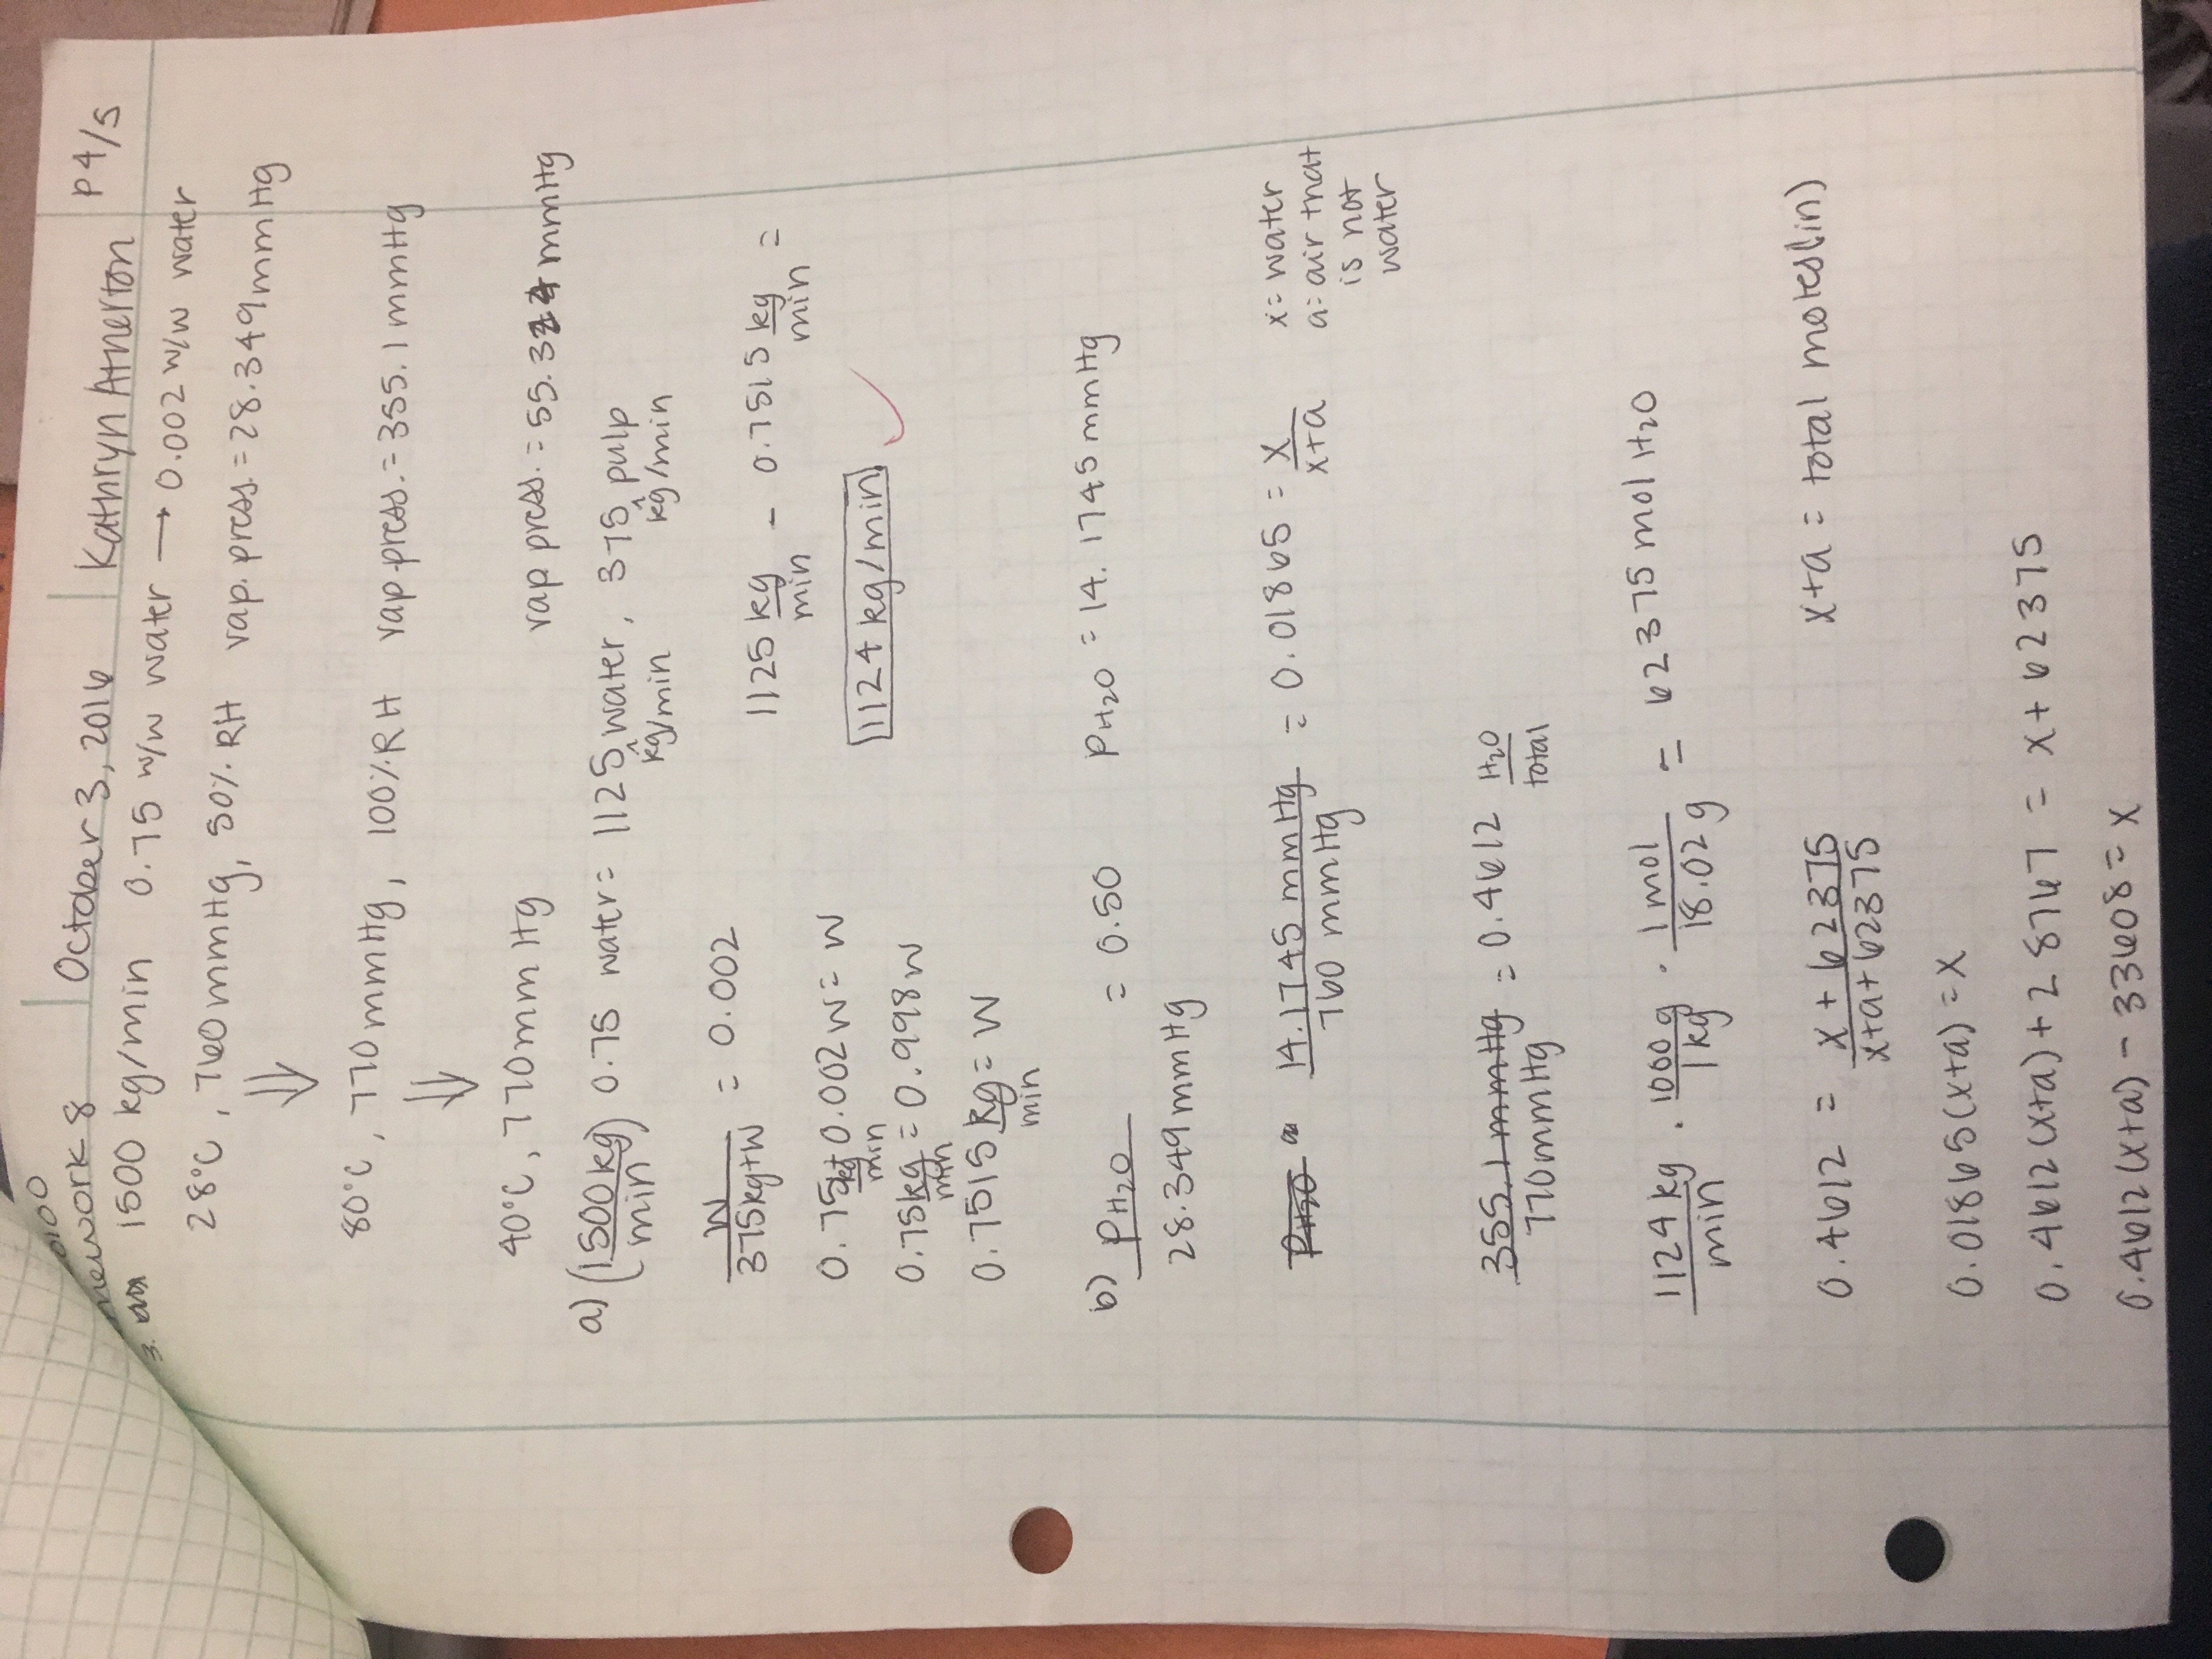 0100
mework 8 October 3, 2016 Kathryn Atherton P4/5
3. 1500 kg/min 0.75 w/w water → 0.002 w/w water
28°C, 760mmHg, 50% RH vap. press. = 28.349mmHg
⇓
80°C, 770mmHg, 100% RH vap. press. = 355.1 mmHg
⇓
40°C, 770mm Hg vap press. = 55.324 mmHg
a) (1500kg/min) 0.75 water = 1125 kg/min water, 375 kg/min pulp
W/(375kg+W) = 0.002
1125 kg/min - 0.7515 kg/min =
0.75 kg/min + 0.002W = W
1124 kg/min ✓
0.75 kg/min = 0.998W
0.7515 kg/min = W
b) PH₂O / 28.349mmHg = 0.50 PH₂O = 14.1745 mmHg
14.1745 mmHg / 760 mmHg = 0.01865 = x/(x+a) x = water
a = air that
is not
water
355.1 mmHg / 770mmHg = 0.4612 H₂O/total
1124 kg/min · 1000 g/1 kg · 1 mol/18.02 g = 62375 mol H₂O
0.4612 = (x + 62375)/(x+a+62375) x+a = total moles(in)
0.01865(x+a) = x
0.4612(x+a) + 28767 = x + 62375
0.4612(x+a) - 33608 = x